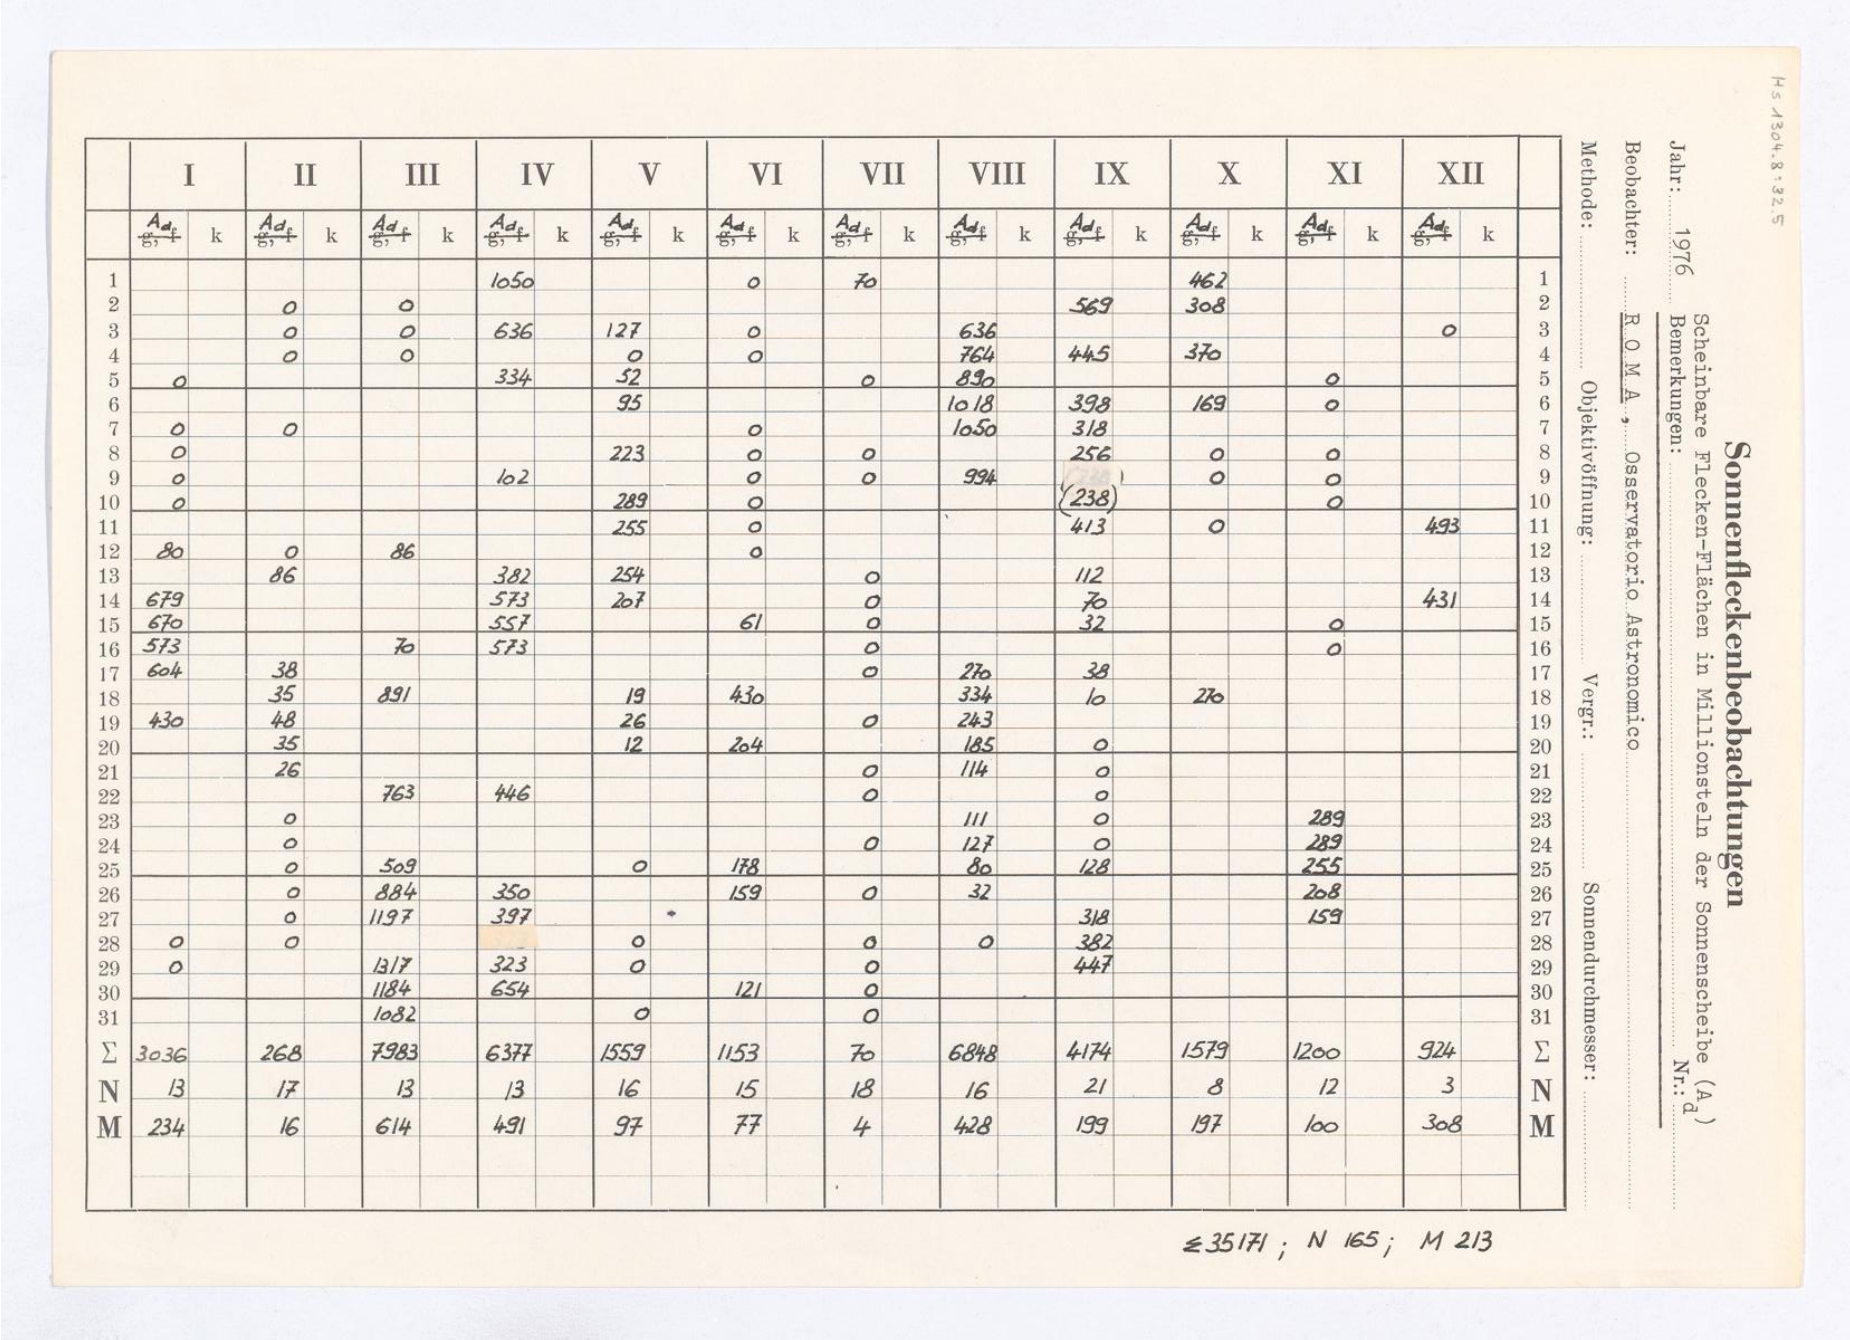 Hs 1304.8:32.5
Sonnenfleckenbeobachtungen
Scheinbare Flecken-Flächen in Millionsteln der Sonnenscheibe (Ad)
Jahr: 1976 Bemerkungen: Nr.:
Beobachter: R O M A , Osservatorio Astronomico
Methode: Objektivöffnung: Vergr.: Sonnendurchmesser:
I II III IV V VI VII VIII IX X XI XII
Ad g,f k Ad g,f k Ad g,f k Ad g,f k Ad g,f k Ad g,f k Ad g,f k Ad g,f k Ad g,f k Ad g,f k Ad g,f k Ad g,f k
1 1050 0 70 462 1
2 0 0 569 308 2
3 0 0 636 127 0 636 0 3
4 0 0 0 0 764 445 370 4
5 0 334 52 0 890 0 5
6 95 1018 398 169 0 6
7 0 0 0 1050 318 7
8 0 223 0 0 256 0 0 8
9 0 102 0 0 994 0 0 9
10 0 289 0 (238) 0 10
11 255 0 413 0 493 11
12 80 0 86 0 12
13 86 382 254 0 112 13
14 679 573 207 0 70 431 14
15 670 557 61 0 32 0 15
16 573 70 573 0 0 16
17 604 38 0 270 38 17
18 35 891 19 430 334 10 270 18
19 430 48 26 0 243 19
20 35 12 204 185 0 20
21 26 0 114 0 21
22 763 446 0 0 22
23 0 111 0 289 23
24 0 0 127 0 289 24
25 0 509 0 178 80 128 255 25
26 0 884 350 159 0 32 208 26
27 0 1197 397 318 159 27
28 0 0 0 0 0 382 28
29 0 1317 323 0 0 447 29
30 1184 654 121 0 30
31 1082 0 0 31
Σ 3036 268 7983 6377 1559 1153 70 6848 4174 1579 1200 924 Σ
N 13 17 13 13 16 15 18 16 21 8 12 3 N
M 234 16 614 491 97 77 4 428 199 197 100 308 M
Σ 35171 ; N 165 ; M 213